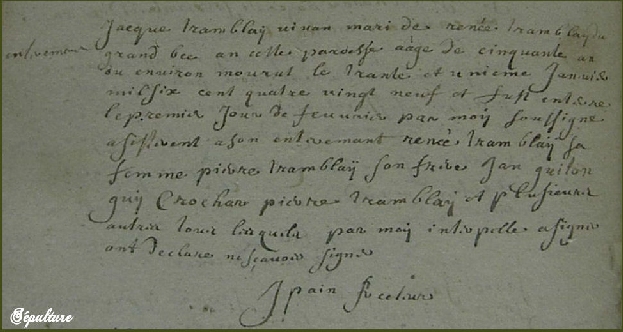 Jacque tramblaÿ vivan mari de renée tramblaÿ du
enterement
grand bee an cette paroesse aàge de cinquante an
ou environ mourut le trante et unieme Janvie
mil six cent quatre vingt neuf et fust entere
le premier Jour de feuvrier par moÿ soussigne
asistirent a son enterement renée tramblaÿ sa
femme pierre tramblaÿ son frere Jan
guÿ Crochar pierre tramblaÿ et plusieurs
autres tous lesquels par moÿ interpelle a signe
ont declare ne scavoir signe
J pain Recteur
Sépulture